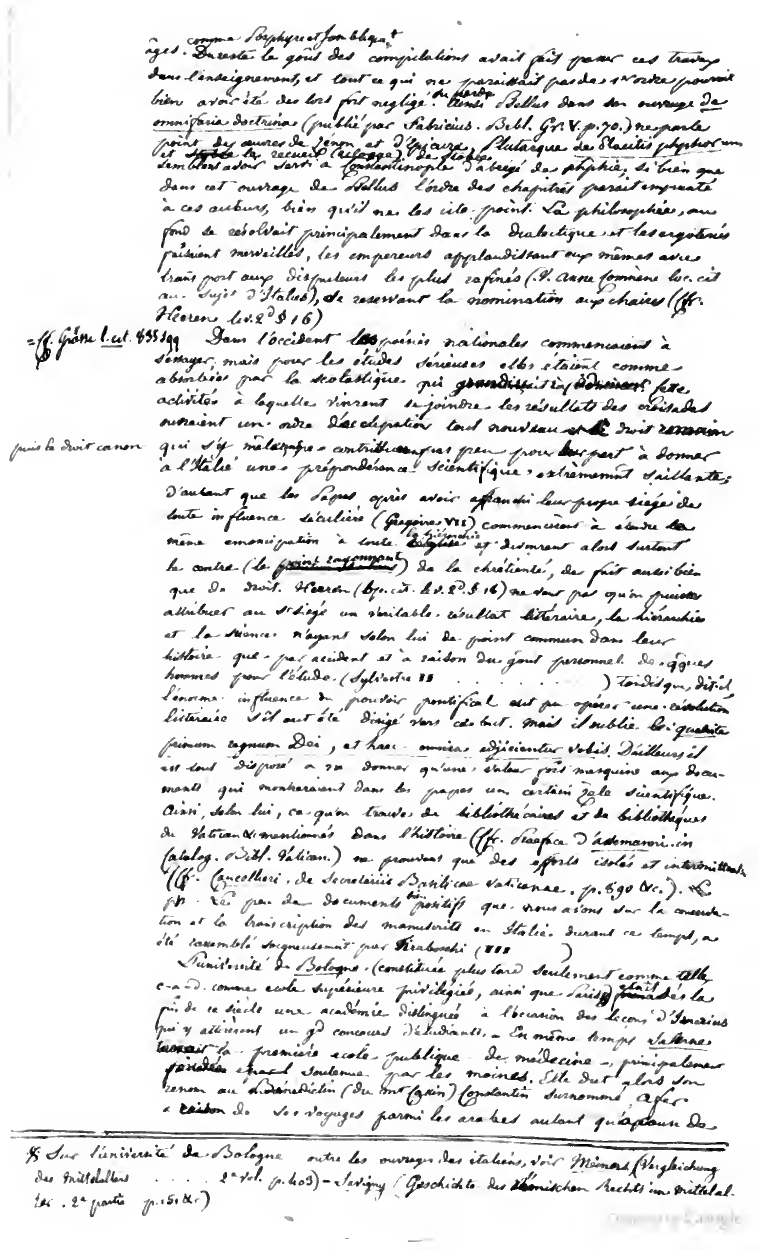 comme Porphyre et Jamblique
âges. Du reste le goût des compilations avait fait passer ces travaux
dans l'enseignement, et tout ce qui ne paraissait pas de 1er ordre pouvait
bien avoir été dès lors fort négligé. Ainsi Psellus dans son ouvrage de
omnifaria doctrina (publié par Fabricius. Bibl. Gr. V. p. 70.) ne parle
point des œuvres de Zénon et d'Epicure, Plutarque de Placitis
et le recueil de
semblent avoir servi à Constantinople d'abrégé de phphie, si bien que
dans cet ouvrage de Psellus l'ordre des chapitres parait emprunté
à ces auteurs, bien qu'il ne les cite point. La philosophie, au
fond se résolvait principalement dans la dialectique et les ergoteries
faisaient merveilles, les empereurs applaudissant eux mêmes avec
transport aux disputeurs les plus rafinés (V. Anne Comnène loc. cit
au sujet d'Italus), se reservant la nomination aux chaires (Cfr.
Heeren liv. 2d § 16)
= Cfr. Grässe l. cit. 835 sqq
Dans l'occident les poésies nationales commencaient à
s'essayer, mais pour les études sérieuses elles étaient comme
absorbées par la scolastique qui
activités à laquelle vinrent se joindre les résultats des croisades
ouvraient un ordre d'occupation tout nouveau et le droit romain
puis le droit canon
qui s'y contribuèrent pas peu pour leur part à donner
à l'Italie une prépondérance scientifique extrêmement saillante;
d'autant que les Papes après avoir affranchi leur propre siége de
toute influence séculière (Grégoire VII) commencèrent à étendre la
même emancipation à toute la hiérarchie et devinrent alors surtout
le centre (le point rayonnant) de la chrétienté, de fait aussi bien
que de droit. Heeren (op. cit. liv. 2d § 16) ne veut pas qu'on puisse
attribuer au St siége un véritable résultat littéraire, la hiérarchie
et la science n'ayant selon lui de point commun dans leur
histoire que par accident et à raison du goût personnel de qques
hommes pour l'étude. (Sylvestre II . . . . . . . ) Tandis que, dit-il
l'énorme influence du pouvoir pontifical eut pu opérer une révolution
littéraire s'il eut été dirigé vers ce but. Mais il oublie le quaerite
primum regnum Dei, et haec omnia adjicientur vobis. D'ailleurs il
est tout disposé à ne donner qu'une valeur fort mesquine aux docu-
ments qui montreraient dans les papes un certain zèle scientifique.
Ainsi, selon lui, ce qu'on trouve de bibliothécaires et de bibliothèques
du Vatican mentionnés dans l'histoire (Cfr. Praeface d'Assemanni in
Catalog. Bibl. Vatican.) ne prouvent que des efforts isolés et intermittents
(Cfr. Cancellieri, de Secretariis Basilicae vaticanae. p. 890 &c.).
Le peu de documents positifs que nous avons sur la conserva-
tion et la transcription des manuscrits en Italie durant ce temps, a
été rassemblé soigneusement par Tiraboschi (III )
L'université de Bologne (constituée plus tard seulement comme telle
c-à-d. comme ecole supérieure privilégiée, ainsi que Paris) était dès la
fin de ce siècle une académie distinguée à l'occasion des leçons d'Irnerius
qui y attirèrent un gd concours d'étudiants. = En même temps Salerne
la première ecole publique de médecine, principalement
soutenue par les moines. Elle dut alors son
renom au Bénédictin (du mt Cassin) Constantin surnommé Afer
à raison de ses voyages parmi les arabes autant qu'à raison de
Sur l'université de Bologne outre les ouvrages des italiens, voir Meiners (Vergleichung
des Mittelalters . . . . . 2d vol. p. 403) - Savigny (Geschichte des römischen Rechts im mittelal-
ter. 2e partie p. 151 &c)